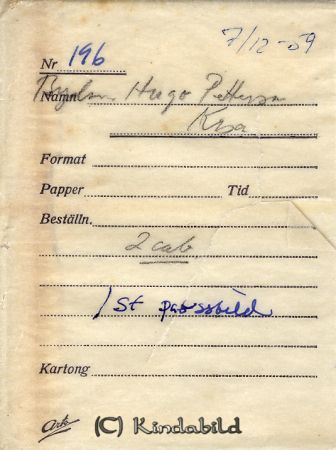 7/12-59
Nr 196
Namn Hugo Pettersson
Kisa
Format
Papper Tid
Beställn.
2 cab
1 st passbild
Kartong
Ark
(C) Kindabild